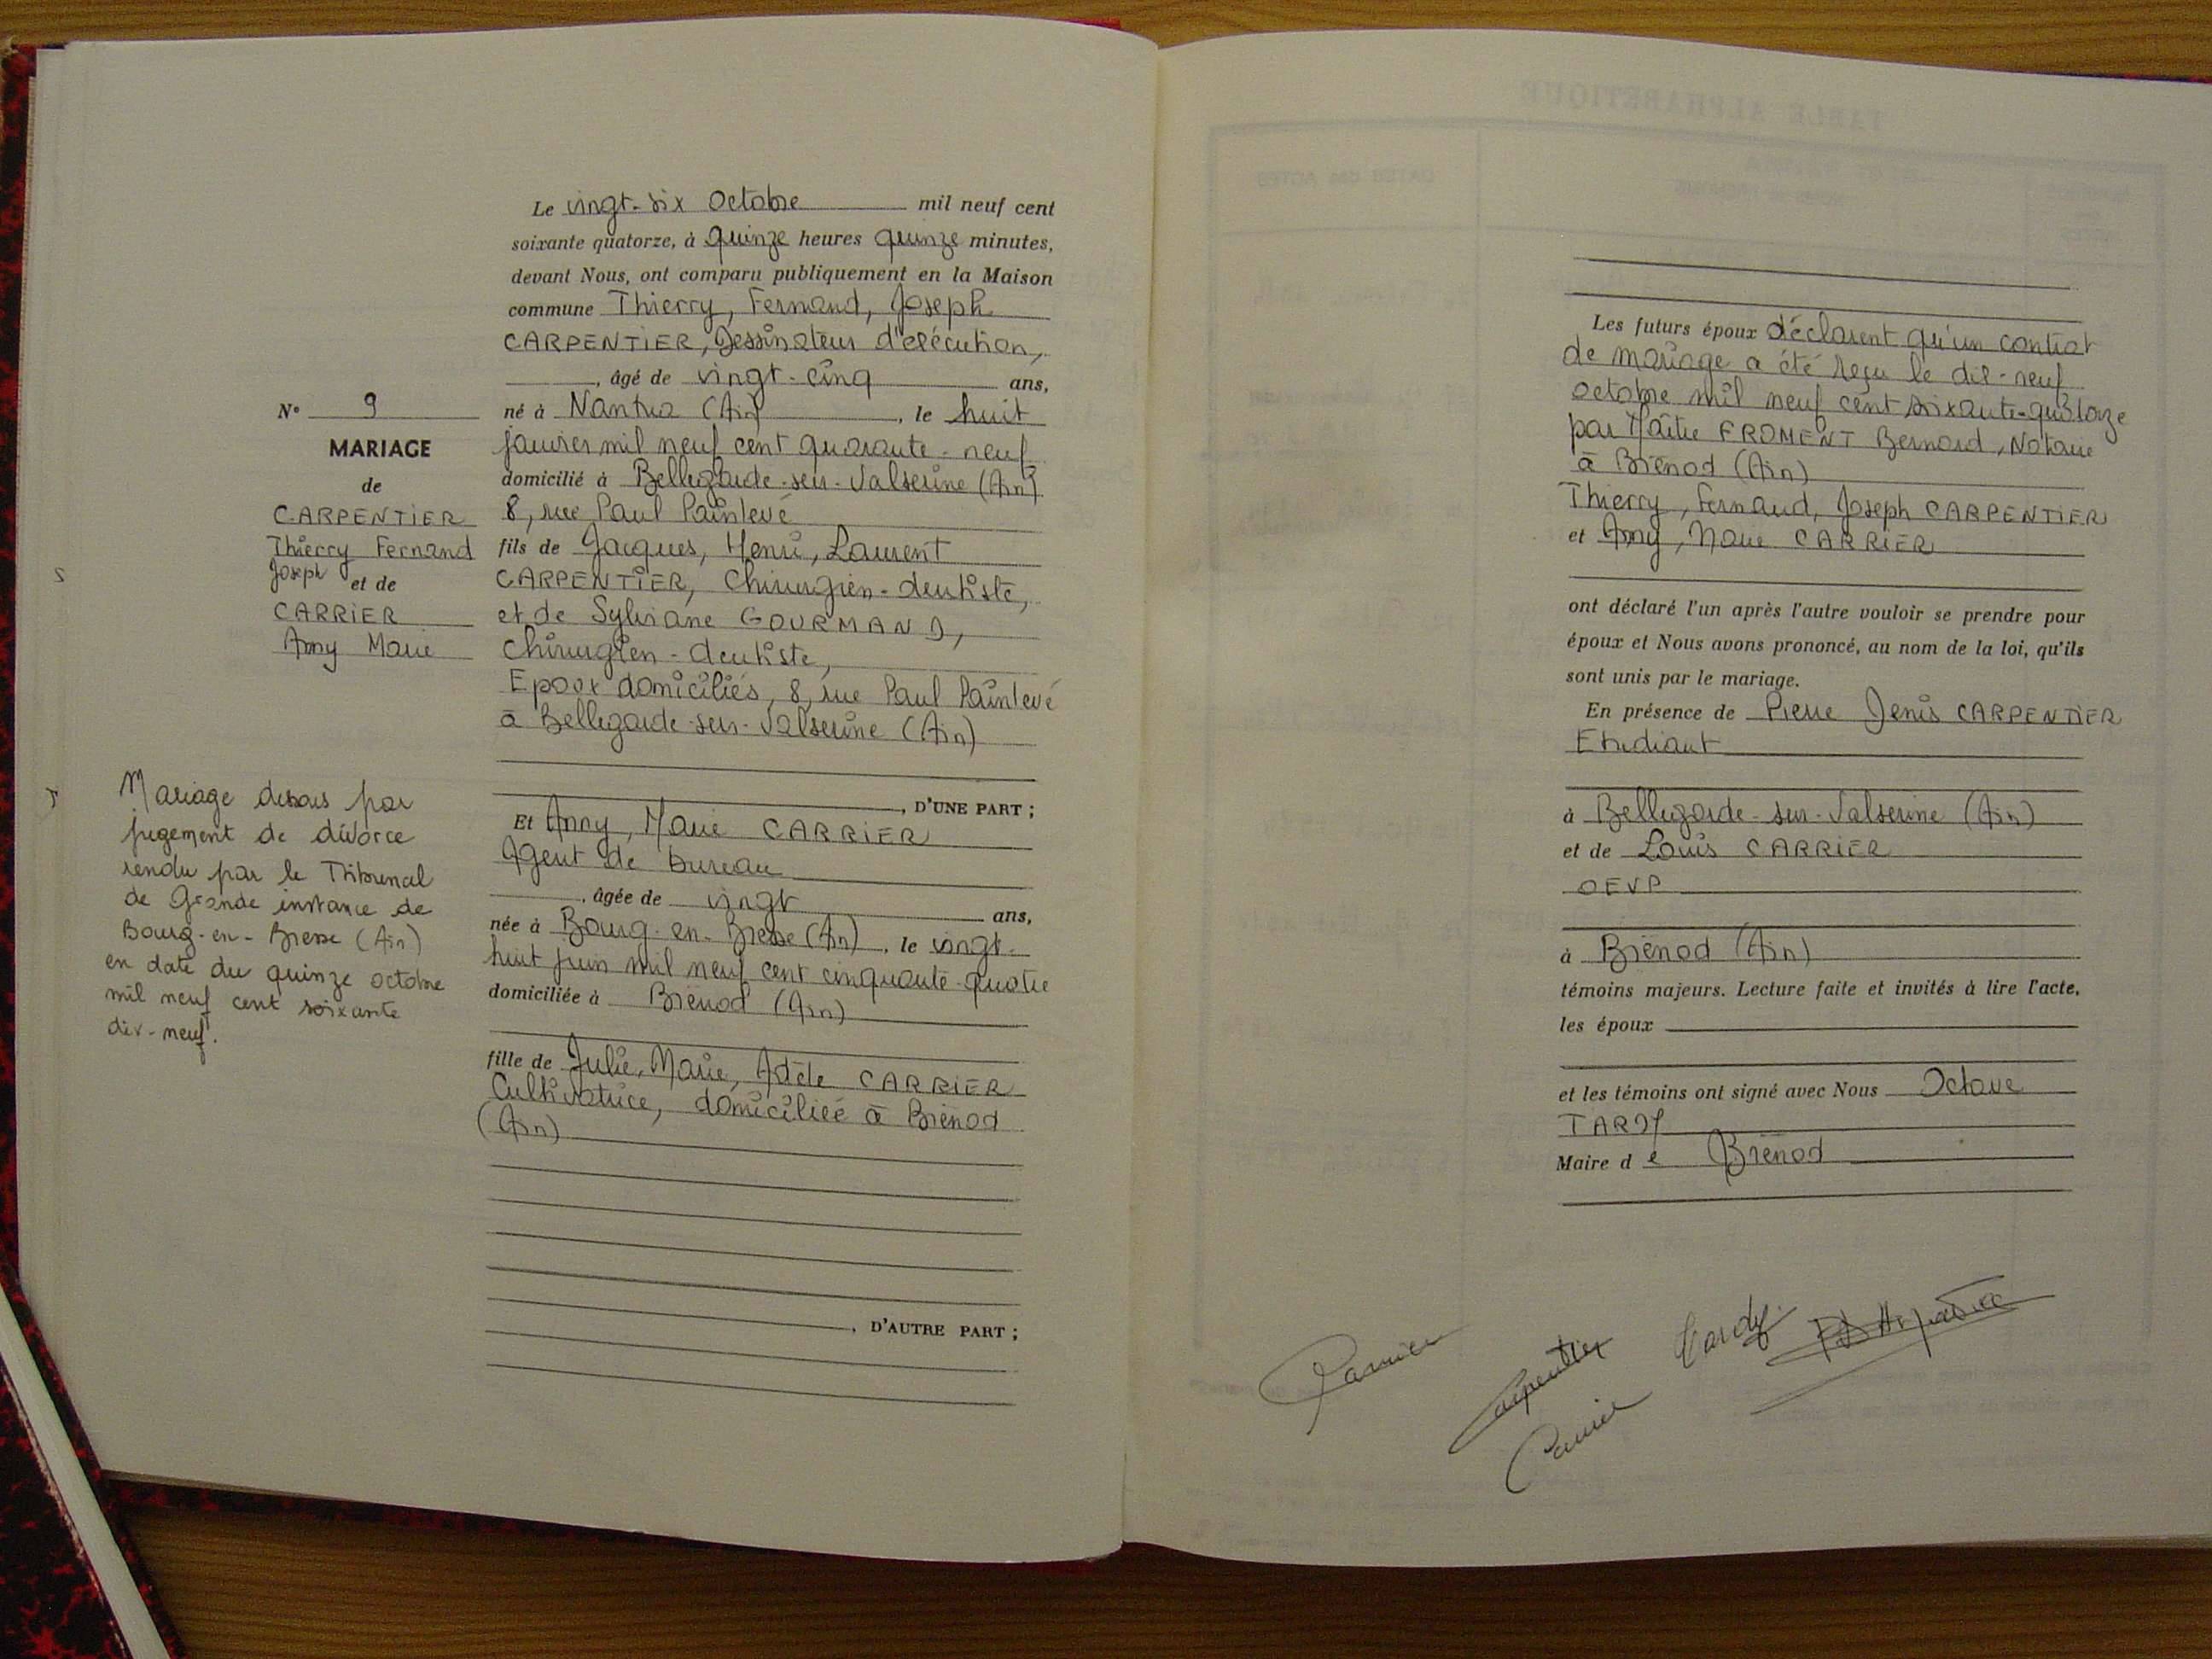 N° 9
MARIAGE
de
CARPENTIER
Thierry Fernand
Joseph et de
CARRIER
Anny Marie
Mariage dissous par
jugement de divorce
rendu par le Tribunal
de Grande instance de
Bourg-en-Bresse (Ain)
en date du quinze octobre
mil neuf cent soixante
dix-neuf.
Le vingt-six Octobre mil neuf cent
soixante quatorze, à quinze heures quinze minutes,
devant Nous, ont comparu publiquement en la Maison
commune Thierry, Fernand, Joseph
CARPENTIER, Dessinateur d'exécution,
, âgé de vingt-cinq ans,
né à Nantua (Ain), le huit
janvier mil neuf cent quarante-neuf
domicilié à Bellegarde-sur-Valserine (Ain)
8, rue Paul Painlevé
fils de Jacques, Henri, Laurent
CARPENTIER, Chirurgien-dentiste,
et de Sylviane GOURMAND,
Chirurgien-dentiste,
Epoux domiciliés, 8, rue Paul Painlevé
à Bellegarde-sur-Valserine (Ain)
, D'UNE PART ;
Et Anny, Marie CARRIER
Agent de bureau
, âgée de vingt ans,
née à Bourg-en-Bresse (Ain), le vingt-
huit juin mil neuf cent cinquante-quatre
domiciliée à Brénod (Ain)
fille de Julie, Marie, Adèle CARRIER
Cultivatrice, domiciliée à Brénod
(Ain)
, D'AUTRE PART ;
Les futurs époux déclarent qu'un contrat
de mariage a été reçu le dix-neuf
octobre mil neuf cent soixante-quatorze
par Maître FROMENT Bernard, Notaire
à Brénod (Ain)
Thierry, Fernand, Joseph CARPENTIER
et Anny, Marie CARRIER
ont déclaré l'un après l'autre vouloir se prendre pour
époux et Nous avons prononcé, au nom de la loi, qu'ils
sont unis par le mariage.
En présence de Pierre Denis CARPENTIER
Etudiant
à Bellegarde-sur-Valserine (Ain)
et de Louis CARRIER
OEVP
à Brénod (Ain)
témoins majeurs. Lecture faite et invités à lire l'acte,
les époux
et les témoins ont signé avec Nous Octave
TARDY
Maire de Brénod
Carrier
Carpentier
Tardy
Carrier